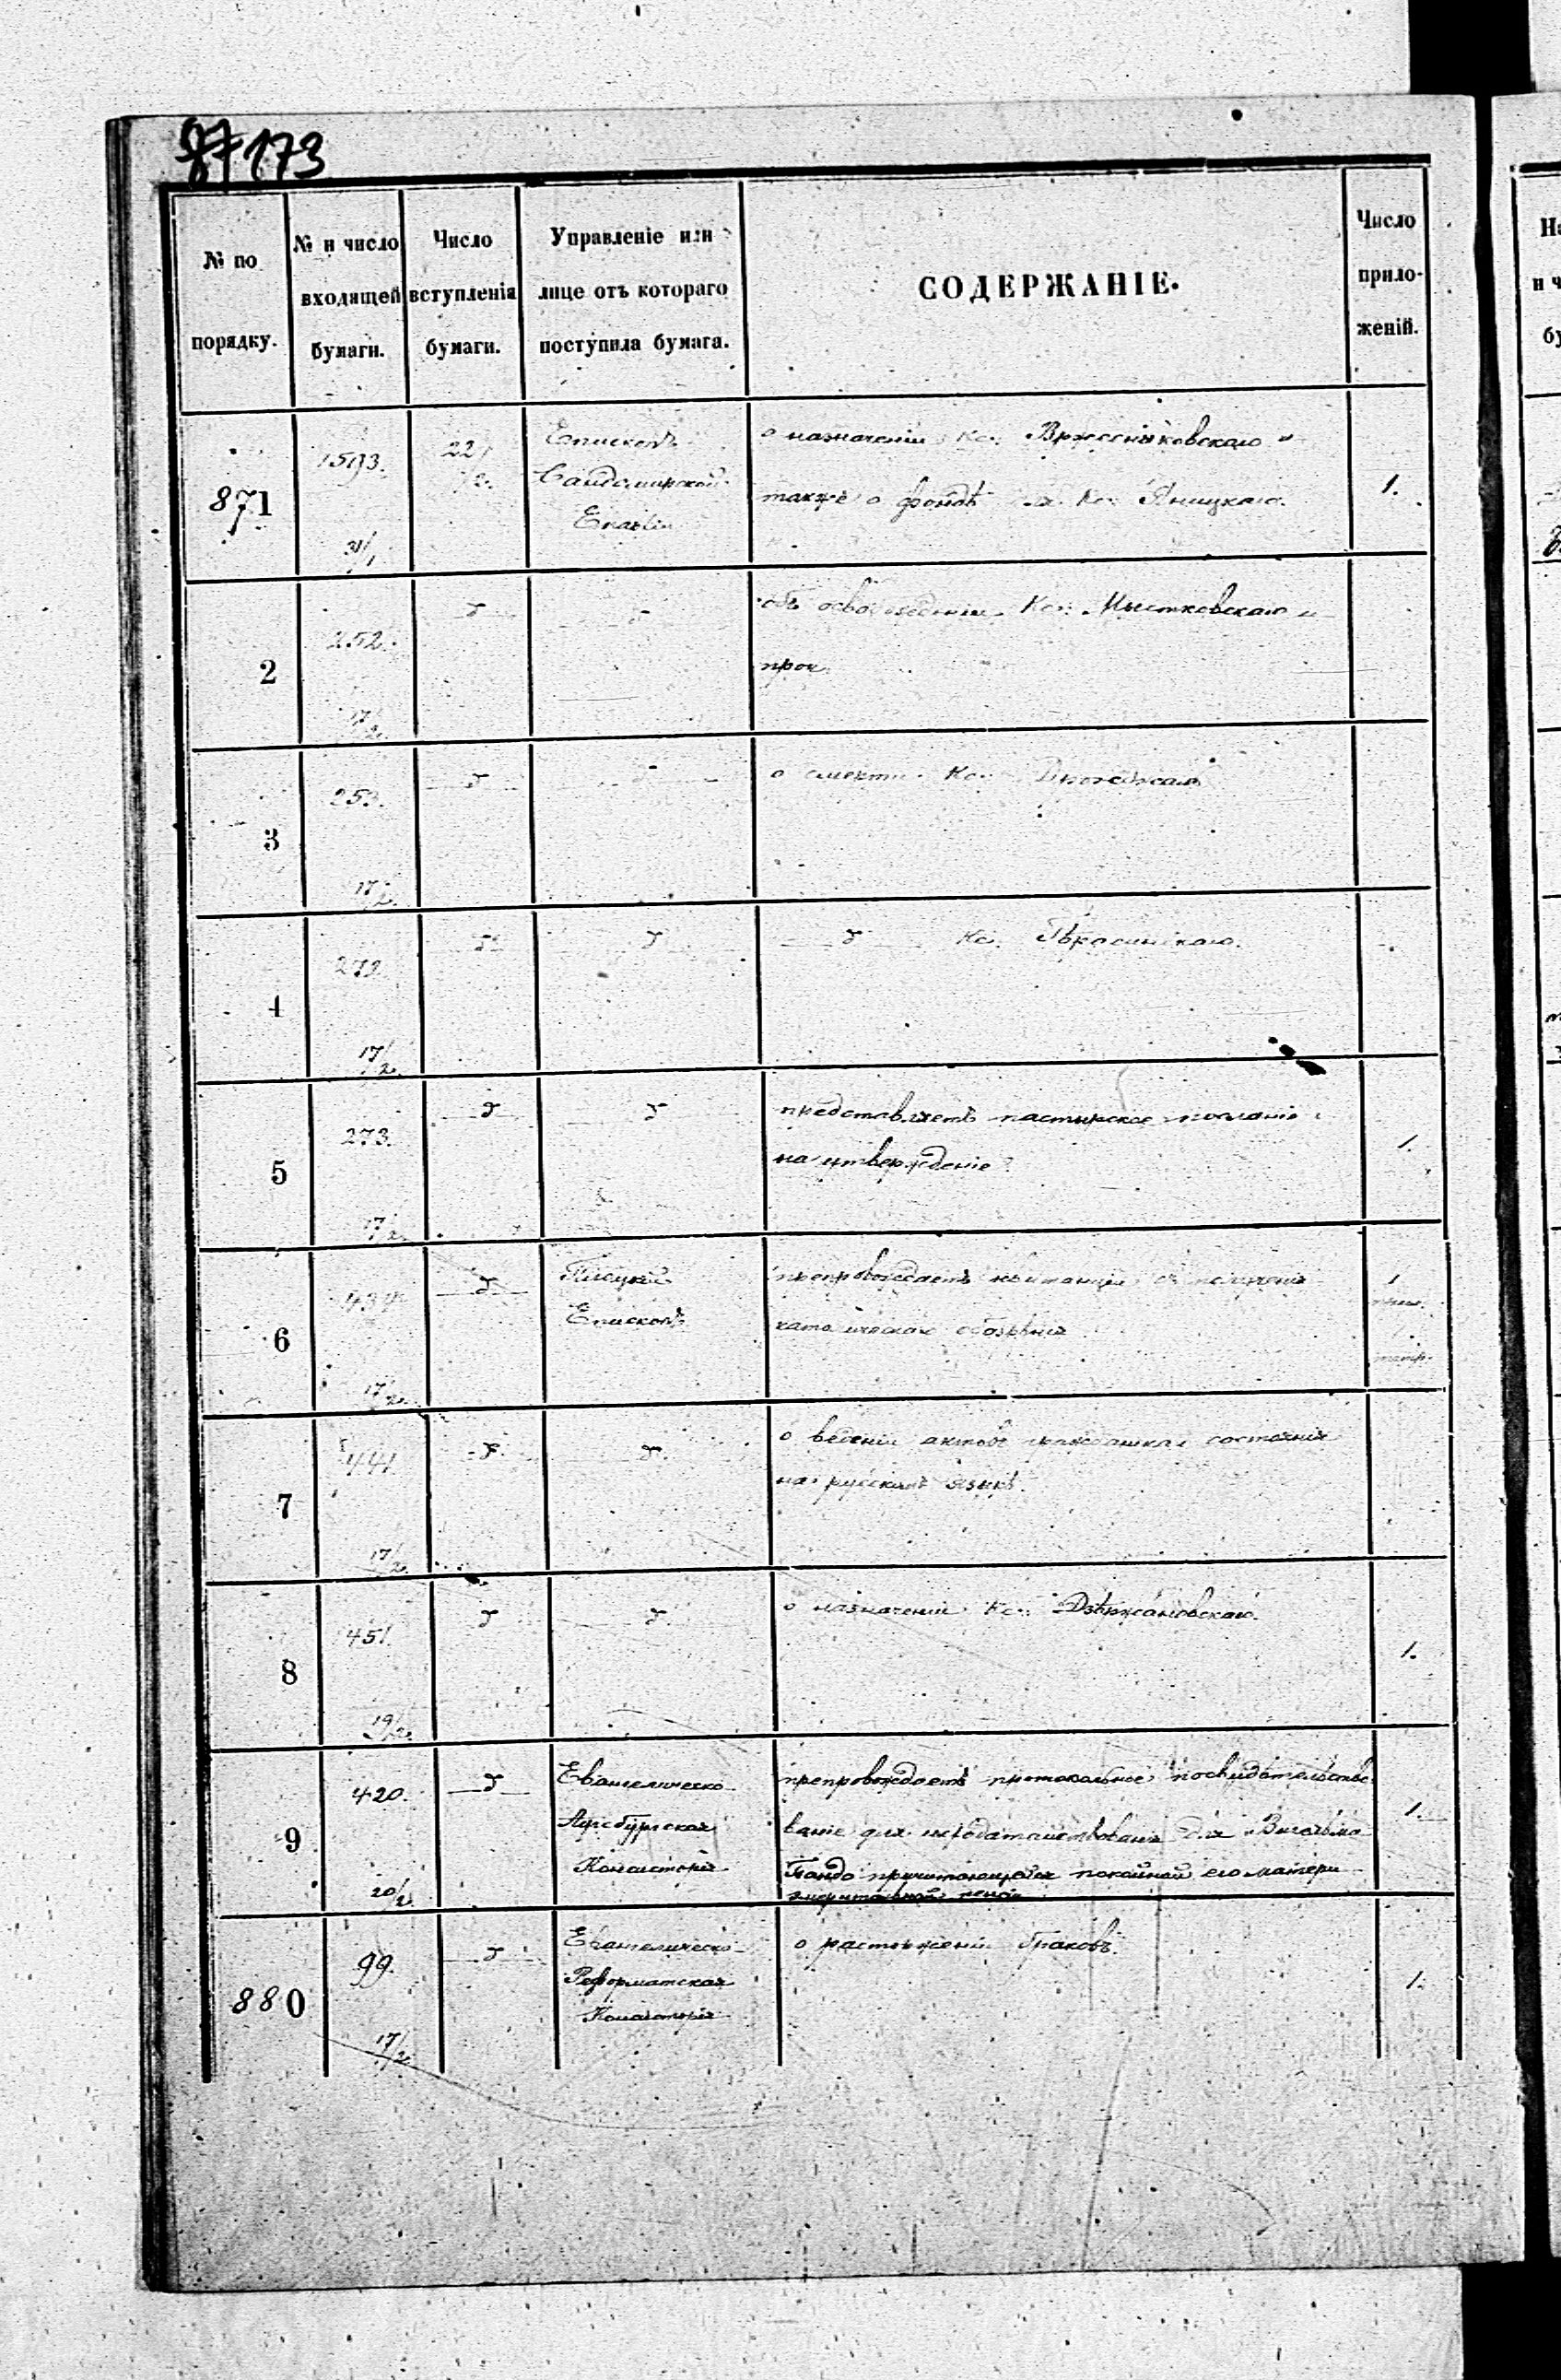 173
№ по порядку.
№ и число входящей бумаги.
Число вступленія бумаги.
Управленіе или лице отъ котораго поступила бумага.
СОДЕРЖАНІЕ.
Число приложеній.
871
1593.
31/1
22/2.
Епископъ
Сандомирской
о назначеніи Кс: Вржесніковскаго и
также о фондѣ Кс: Яницкаго.
1.
2
252.
17/2.
объ освобожденіи Кс: Мыстковскаго и
проч.
3
253.
17/2.
о смерти Кс:
4
272.
17/2.
Кс:
5
273.
17/2
представляетъ пастырское посланіе
на утвержденіе.
1.
6
434.
17/2.
Плоцкій
Епископъ
препровождаетъ квитанцію о полученіи
католическаго обозрѣнія
1
7
441.
17/2.
о веденіи актовъ гражданскаго состоянія
на русскомъ языкѣ.
8
451.
19/2.
о назначеніи Кс: Дзѣржановскаго.
1.
9
420.
20/2.
Евангелическо
Аугсбургская
Консисторія
препровождаетъ протокольное посвидѣтельство
ваніе для исходатайствованія для Вильгельма
причитающейся покойной его матери
1.
880
99.
17/2
Евангелическо
Реформатская
Консисторія
о расторженіи браковъ.
1.